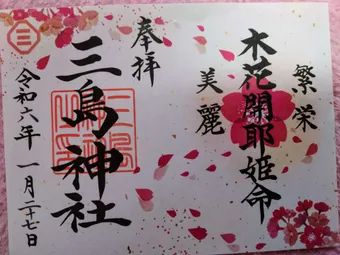 繁栄
木花開耶姫命
美麗
奉拝
三島神社
令和六年 一月二十七日